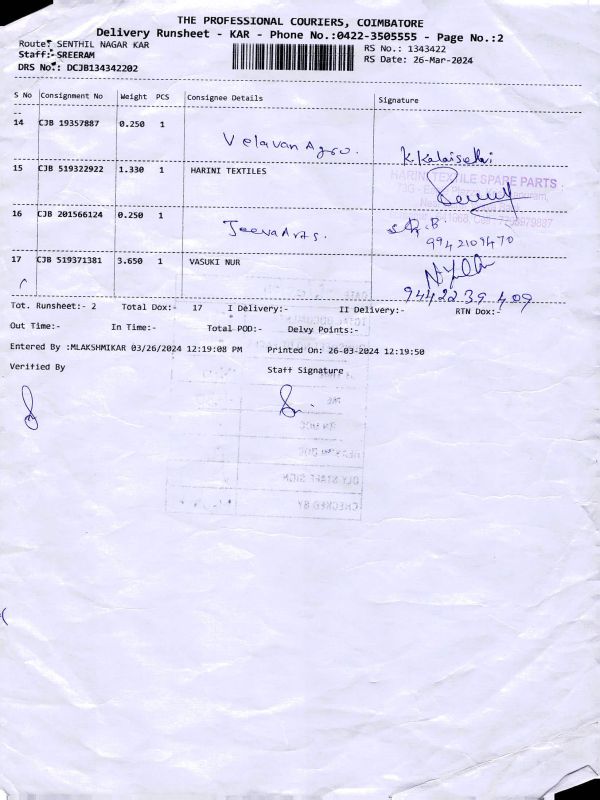 THE PROFESSIONAL COURIERS, COIMBATORE
Delivery Runsheet - KAR - Phone No.:0422-3505555 - Page No.:2
Route: SENTHIL NAGAR KAR
RS No.: 1343422
Staff:- SREERAM
RS Date: 26-Mar-2024
DRS No.: DCJB134342202
S No Consignment No Weight PCS Consignee Details Signature
--
14 CJB 19357887 0.250 1 Velavan Agro. K. Kalaiselvi
15 CJB 519322922 1.330 1 HARINI TEXTILES
HARINI TEXTILE SPARE PARTS
16 CJB 201566124 0.250 1 Jeeva Arts.
9942109470
17 CJB 519371381 3.650 1 VASUKI NUR
9442239409
Tot. Runsheet:- 2 Total Dox:- 17 I Delivery:- II Delivery:- RTN Dox:-
Out Time:- In Time:- Total POD:- Delvy Points:-
Entered By :MLAKSHMIKAR 03/26/2024 12:19:08 PM Printed On: 26-03-2024 12:19:50
Verified By Staff Signature